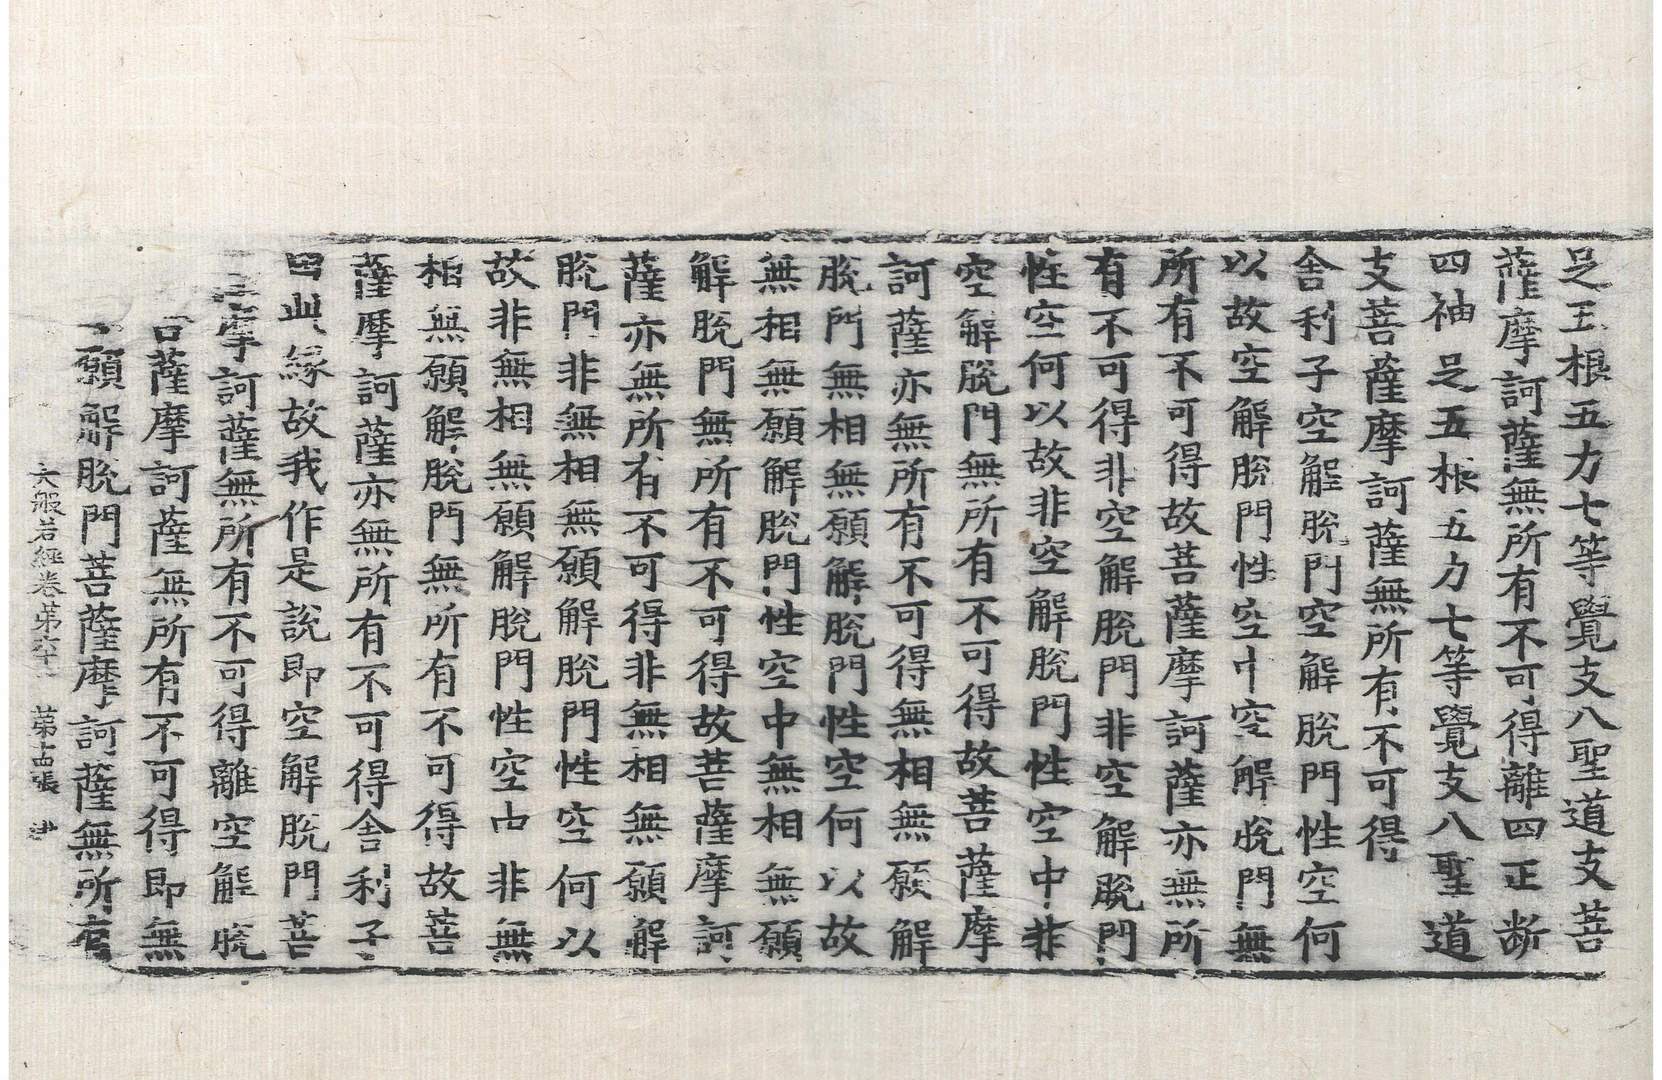 足五根五力七等覺支八聖道支菩
薩摩訶薩無所有不可得離四正断
四神足五根五力七等覺支八聖道
支菩薩摩訶薩無所有不可得
舎利子空解脫門空解脫門性空何
以故空解脫門性空中空解脫門無
所有不可得故菩薩摩訶薩亦無所
有不可得非空解脫門非空解脫門
性空何以故非空解脫門性空中非
空解脫門無所有不可得故菩薩摩
訶薩亦無所有不可得無相無願解
脫門無相無願解脫門性空何以故
無相無願解脫門性空中無相無願
解脫門無所有不可得故菩薩摩訶
薩亦無所有不可得非無相無願解
脫門非無相無願解脫門性空何以
故非無相無願解脫門性空中非無
相無願解脫門無所有不可得故菩
薩摩訶薩亦無所有不可得舎利子
因此緣故我作是說即空解脫門菩
摩訶薩無所有不可得離空解脫
薩摩訶薩無所有不可得即無
願解脫門菩薩摩訶薩無所有
大般若經卷第六十一 第十四張